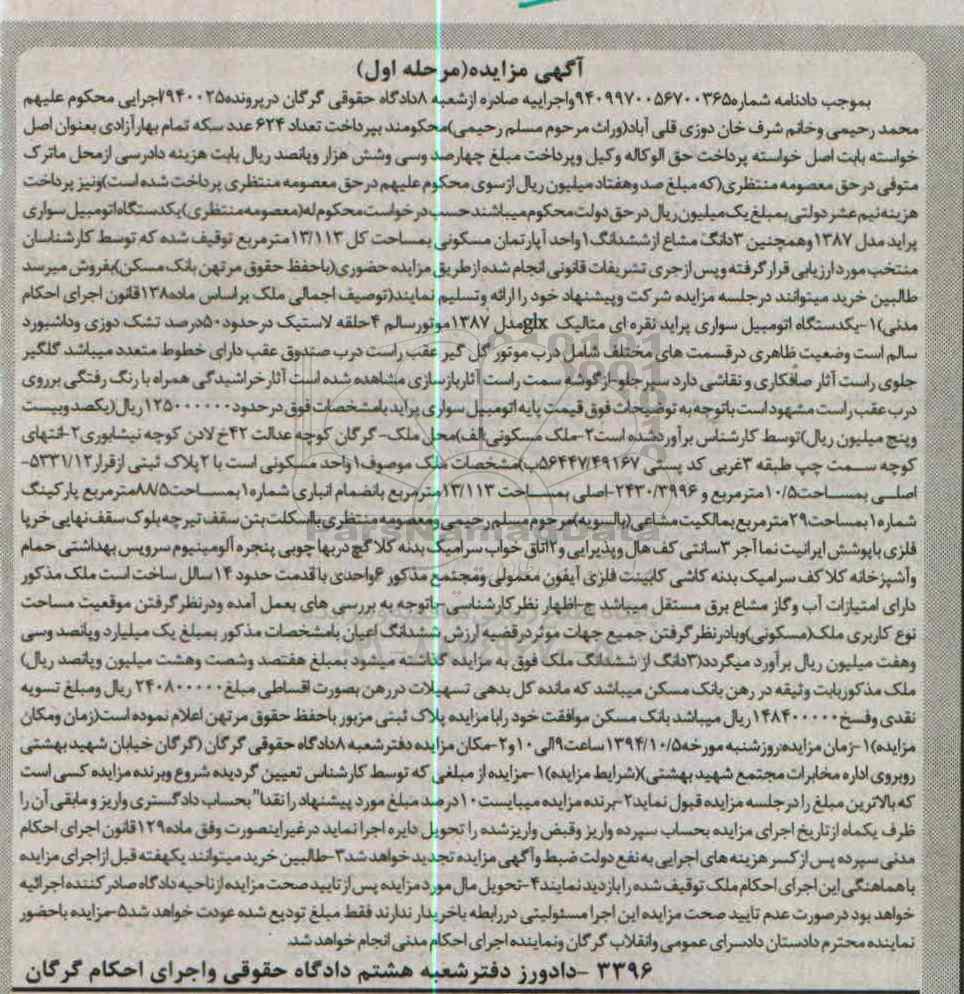 آگهی مزایده(مرحله اول)
بموجب دادنامه شماره۹۴۰۹۹۷۰۰۵۶۷۰۰۳۶۵واجراییه صادره ازشعبه ۸دادگاه حقوقی گرگان درپرونده۹۴۰۰۲۵/اجرایی محکوم علیهم
محمد رحیمی وخانم شرف خان دوزی قلی آباد(وراث مرحوم مسلم رحیمی)محکومند بپرداخت تعداد ۶۲۴ عدد سکه تمام بهارآزادی بعنوان اصل
خواسته بابت اصل خواسته پرداخت حق الوکاله وکیل وپرداخت مبلغ چهارصد وسی وشش هزار وپانصد ریال بابت هزینه دادرسی ازمحل ماترک
متوفی درحق معصومه منتظری(که مبلغ صد وهفتاد میلیون ریال ازسوی محکوم علیهم درحق معصومه منتظری پرداخت شده است)ونیز پرداخت
هزینه نیم عشر دولتی بمبلغ یک میلیون ریال درحق دولت محکوم میباشند حسب درخواست محکوم له(معصومه منتظری)یکدستگاه اتومبیل سواری
پراید مدل ۱۳۸۷وهمچنین ۳دانگ مشاع ازششدانگ۱واحد آپارتمان مسکونی بمساحت کل ۱۳/۱۱۳مترمربع توقیف شده که توسط کارشناسان
منتخب مورد ارزیابی قرار گرفته وپس ازجری تشریفات قانونی انجام شده ازطریق مزایده حضوری(باحفظ حقوق مرتهن بانک مسکن)بفروش میرسد
طالبین خرید میتوانند درجلسه مزایده شرکت وپیشنهاد خود را ارائه وتسلیم نمایند(توصیف اجمالی ملک براساس ماده۱۳۸قانون اجرای احکام
مدنی)۱-یکدستگاه اتومبیل سواری پراید نقره ای متالیک glxمدل ۱۳۸۷موتورسالم ۴حلقه لاستیک درحدود۵۰درصد تشک دوزی وداشبورد
سالم است وضعیت ظاهری درقسمت های مختلف شامل درب موتور گل گیر عقب راست درب صندوق عقب دارای خطوط متعدد میباشد گلگیر
جلوی راست آثار صافکاری و نقاشی دارد سپرجلو-ازگوشه سمت راست آثاربازسازی مشاهده شده است آثارخراشیدگی همراه با رنگ رفتگی برروی
درب عقب راست مشهود است باتوجه به توضیحات فوق قیمت پایه اتومبیل سواری پراید بامشخصات فوق درحدود۱۲۵۰۰۰۰۰۰ریال(یکصد وبیست
وپنج میلیون ریال)توسط کارشناس برآوردشده است۲-ملک مسکونی:الف)محل ملک- گرگان کوچه عدالت ۴۲خ لادن کوچه نیشابوری۲-انتهای
کوچه سمت چپ طبقه ۳غربی کد پستی ۵۶۴۴۷/۴۹۱۶۷ب)مشخصات ملک موصوف۱واحد مسکونی است با ۲پلاک ثبتی ازقرار۵۳۳۱/۱۲-
اصلی بمساحت۱۰/۵مترمربع و ۲۴۳۰/۳۹۹۶-اصلی بمساحت ۱۳/۱۱۳مترمربع بانضمام انباری شماره۱بمساحت۸۸/۵مترمربع پارکینگ
شماره۱بمساحت۲۹مترمربع بمالکیت مشاعی(بالسویه)مرحوم مسلم رحیمی ومعصومه منتظری بااسکلت بتن سقف تیرچه بلوک سقف نهایی خرپا
فلزی باپوشش ایرانیت نما آجر ۳سانتی کف هال وپذیرایی و۲اتاق خواب سرامیک بدنه کلا گچ دربها چوبی پنجره آلومینیوم سرویس بهداشتی حمام
وآشپزخانه کلا کف سرامیک بدنه کاشی کابینت فلزی آیفون معمولی ومجتمع مذکور ۶واحدی با قدمت حدود ۱۴ سالل ساخت است ملک مذکور
دارای امتیازات آب وگاز مشاع برق مستقل میباشد ج-اظهار نظرکارشناسی-باتوجه به بررسی های بعمل آمده ودرنظرگرفتن موقعیت مساحت
نوع کاربری ملک(مسکونی)وبادرنظرگرفتن جمیع جهات موثردرقضیه ارزش ششدانگ اعیان بامشخصات مذکور بمبلغ یک میلیارد وپانصد وسی
وهفت میلیون ریال برآورد میگردد(۳دانگ از ششدانگ ملک فوق به مزایده گذاشته میشود بمبلغ هفتصد وشصت وهشت میلیون وپانصد ریال)
ملک مذکوربابت وثیقه در رهن بانک مسکن میباشد که مانده کل بدهی تسهیلات دررهن بصورت اقساطی مبلغ۲۴۰۸۰۰۰۰۰ ریال ومبلغ تسویه
نقدی وفسخ۱۴۸۴۰۰۰۰۰ریال میباشد بانک مسکن موافقت خود رابا مزایده پلاک ثبتی مزبور باحفظ حقوق مرتهن اعلام نموده است(زمان ومکان
مزایده)۱-زمان مزایده:روزشنبه مورخه۱۳۹۴/۱۰/۵ساعت۹الی۱۰و۲-مکان مزایده دفترشعبه ۸دادگاه حقوقی گرگان (گرگان خیابان شهید بهشتی
روبروی اداره مخابرات مجتمع شهید بهشتی)(شرایط مزایده)۱-مزایده از مبلغی که توسط کارشناس تعیین گردیده شروع وبرنده مزایده کسی است
که بالاترین مبلغ را درجلسه مزایده قبول نماید۲-برنده مزایده میبایست ۱۰درصد مبلغ مورد پیشنهاد را نقدا" بحساب دادگستری واریز و مابقی آن را
ظرف یکماه ازتاریخ اجرای مزایده بحساب سپرده واریز وقبض واریزشده را تحویل دایره اجرا نماید درغیراینصورت وفق ماده۱۲۹قانون اجرای احکام
مدنی سپرده پس ازکسر هزینه های اجرایی به نفع دولت ضبط وآگهی مزایده تجدید خواهد شد۳-طالبین خرید میتوانند یکهفته قبل ازاجرای مزایده
باهماهنگی این اجرای احکام ملک توقیف شده را بازدید نمایند۴-تحویل مال مورد مزایده پس ازتایید صحت مزایده ازناحیه دادگاه صادر کننده اجرائیه
خواهد بود درصورت عدم تایید صحت مزایده این اجرا مسئولیتی دررابطه باخریدار ندارند فقط مبلغ تودیع شده عودت خواهد شد۵-مزایده باحضور
نماینده محترم دادستان دادسرای عمومی وانقلاب گرگان ونماینده اجرای احکام مدنی انجام خواهد شد.
۳۳۹۶ -دادورز دفترشعبه هشتم دادگاه حقوقی واجرای احکام گرگان